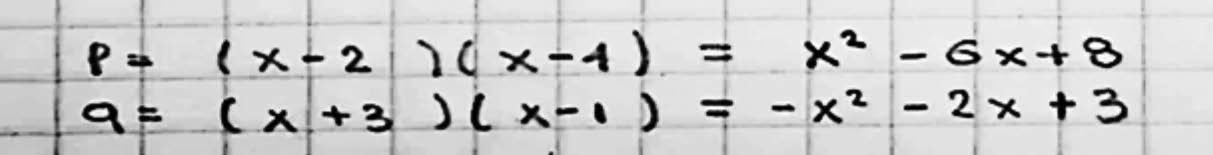 P = (x-2)(x-4) = x² - 6x+8
q = (x+3)(x-1) = -x² - 2x + 3